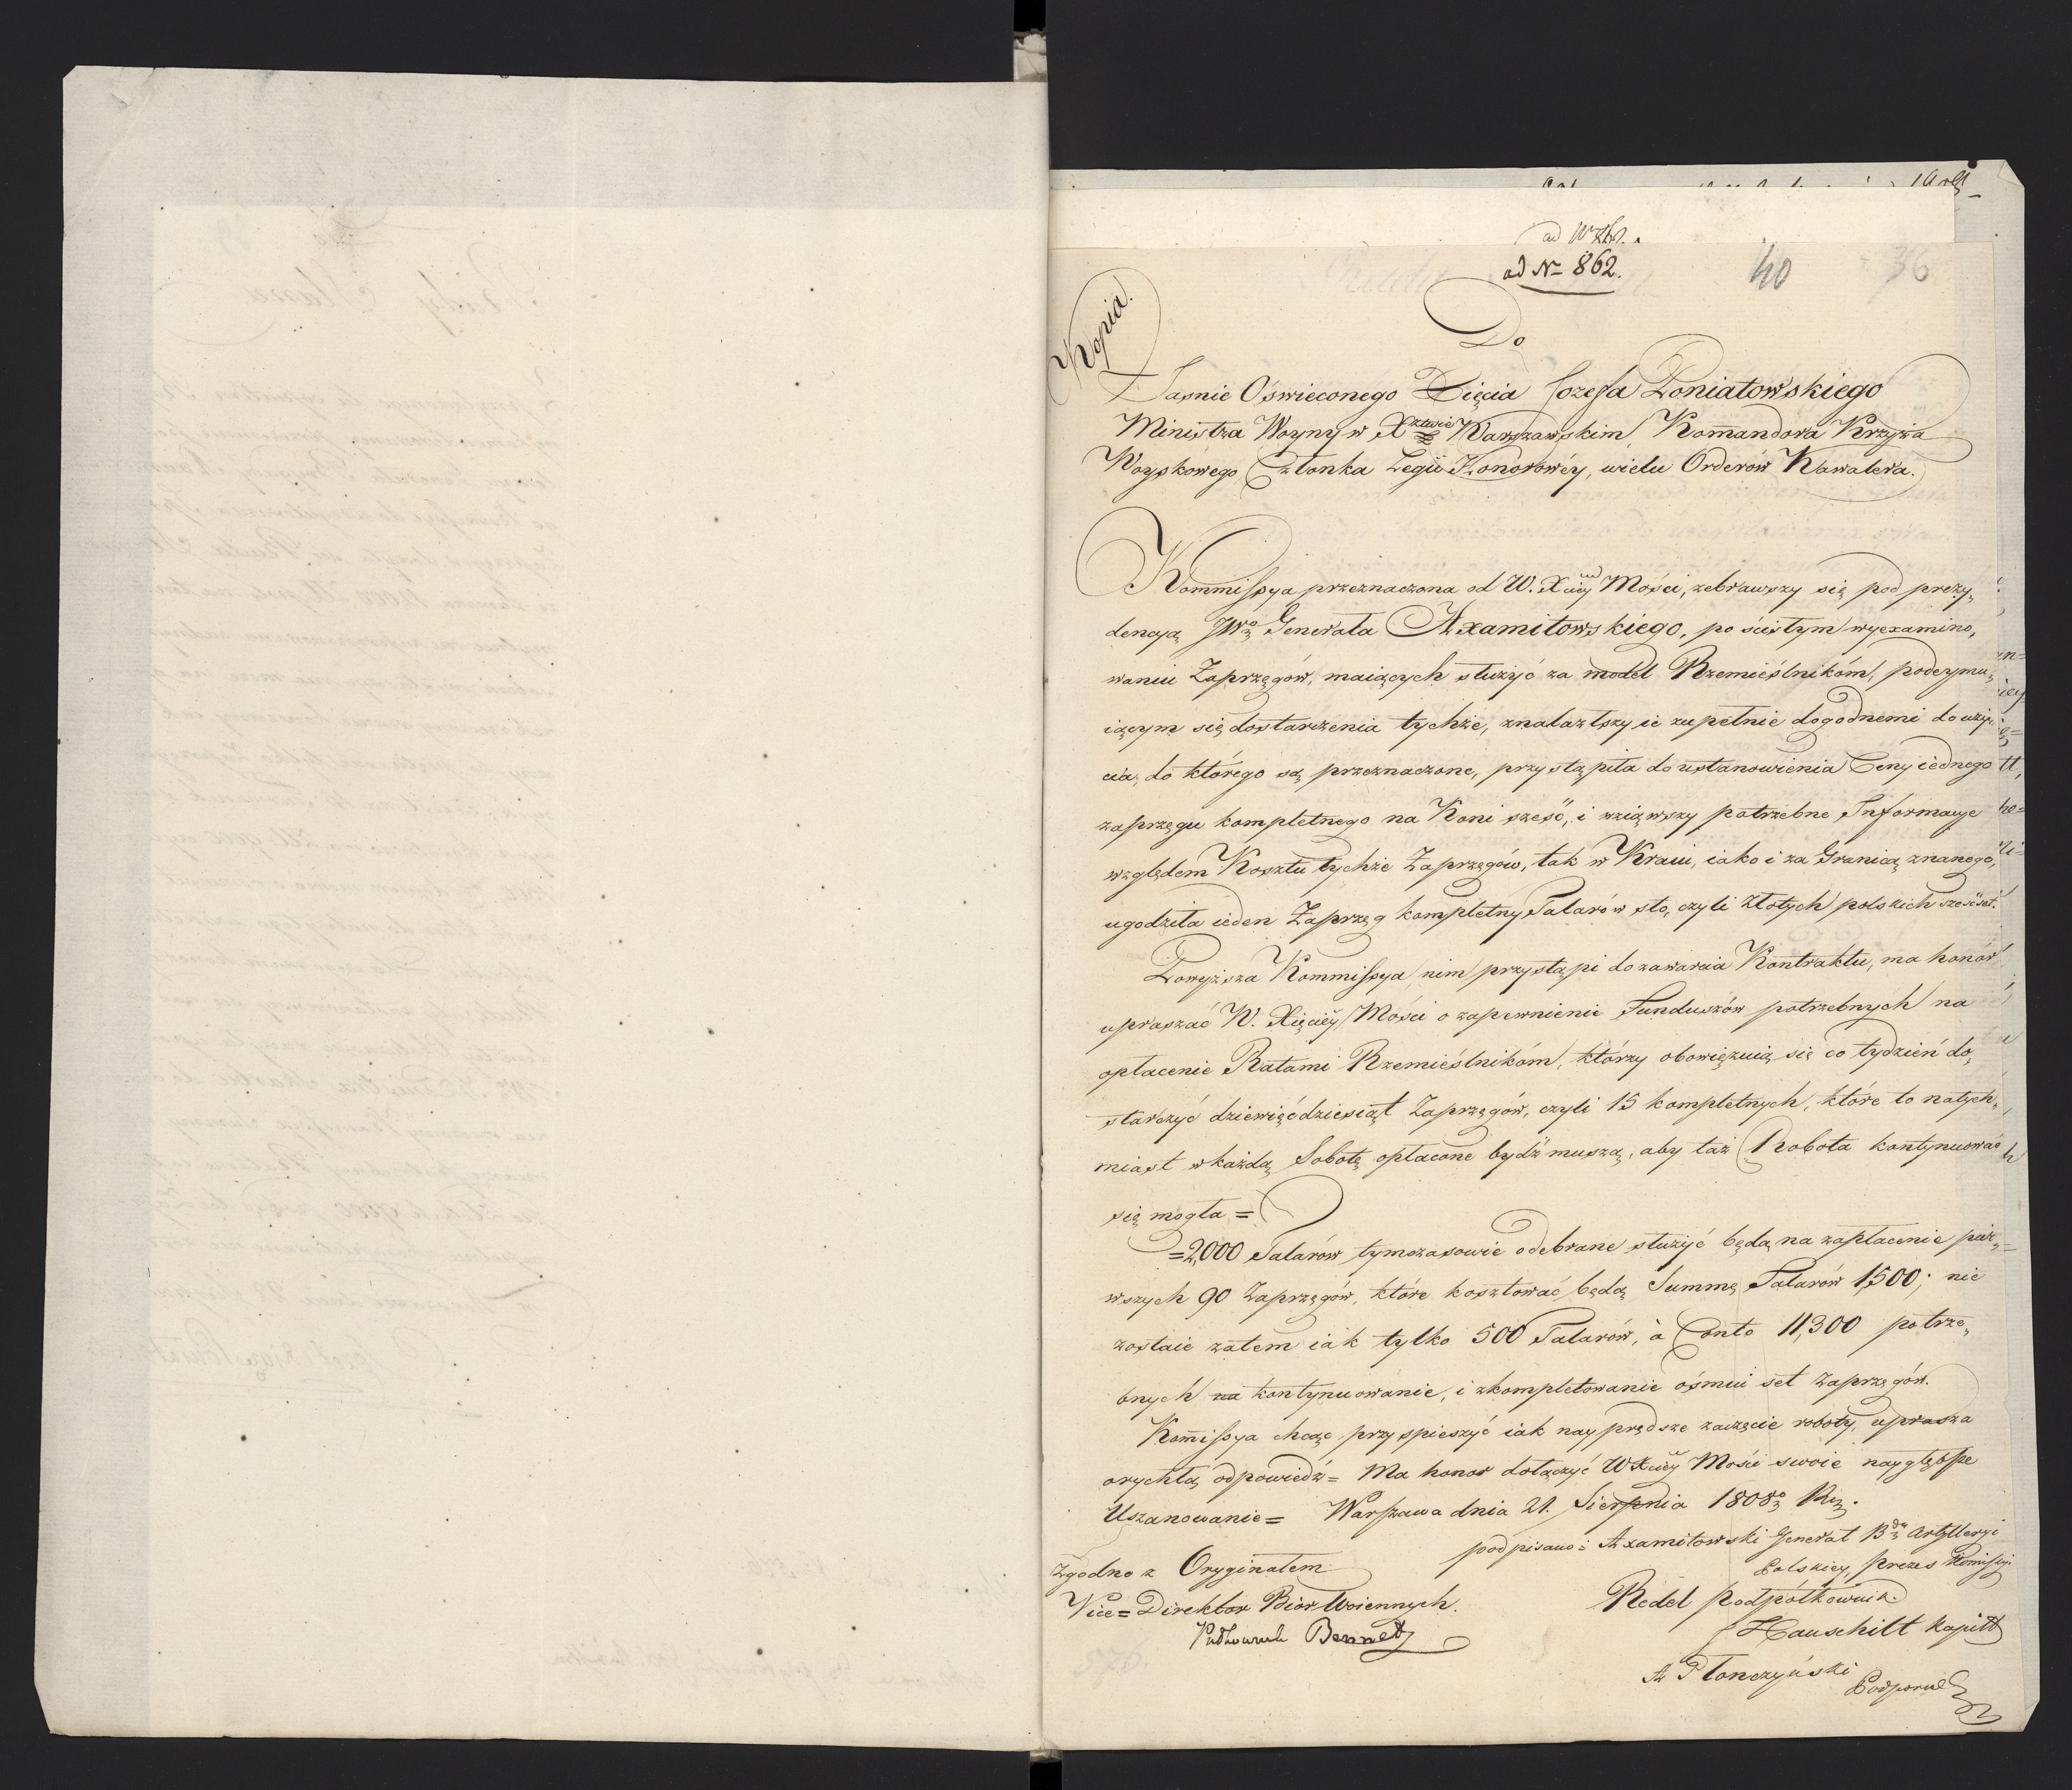 ad N 862.
ad No 862.
40 36
Kopia.
Do
Jaśnie Oświeconego Xięcia Jozefa Poniatowskiego
Ministra Woyny w Xztwie Warszawskim, Kommandora Krzyża
Woyskowego Członka Legii Honorowéy, wielu Orderów Kawalera.
Kommissya przeznaczona od W. Xcéy Mości, zebrawszy się pod prezy„
dencyą JWo Generała Axamitowskiego, po ścisłym wyexamino„
waniu Zaprzęgów, maiących służyć za model Rzemieślnikóm, podeymu„
iącym się dostarczenia tychże, znalazłszy ie zupełnie dogodnemi do uży„
cia, do którego są przeznaczone, przystąpiła do ustanowienia Ceny iednego
zaprzęgu kompletnego na Koni sześć, i wziąwszy potrzebne Informacye
względem Kosztu tychże Zaprzęgów, tak w Kraiu, iako i za Granicą znanego,
ugodziła ieden Zaprzęg kompletny Talarów sto, czyli Złotych polskich sześćset.
Powyższa Kommissya, nim przystąpi do zawarcia Kontraktu, ma honór
upraszać W. Xięcéy Mości o zapewnienie Funduszów potrzebnych na
opłacenie Ratami Rzemieślnikóm, którzy obowięzuią się co tydzień do„
starczyć dziewięćdziesiąt Zaprzęgów, czyli 15 kompletnych, które to natych„
miast w każdą Sobotę opłacone bydź muszą, aby taż Robota kontynuować
się mogła =
= 2,000 Talarów tymczasowie odebrane służyć będą na zapłacenie pier„
wszych 90 Zaprzęgów, które kosztować będą Summę Talarów 1,500; nie
zostaie zatem iak tylko 500 Talarów, à Conto 11,300 potrze„
bnych na kontynuowanie, i zkompletowanie ośmiu set Zaprzęgów.
Komissya chcąc przyspieszyć iak nayprędsze zaczęcie roboty, uprasza
orychłą odpowiedź = Ma honor dołączyć W Xcéy Mości swoie naygłębsze
Uszanowanie = Warszawa dnia 21. Sierpnia 1808o Rz.
podpisano: Axamitowski Generał Bdy Artylleryi
Polskiey, prezes Komissyi
Zgodno z Oryginałem
Vice = Direktor Biór Woiennych.
Bennet
Redel Podpółkownik
Hauschilt Kapitt
A Płonczyński Podporucz